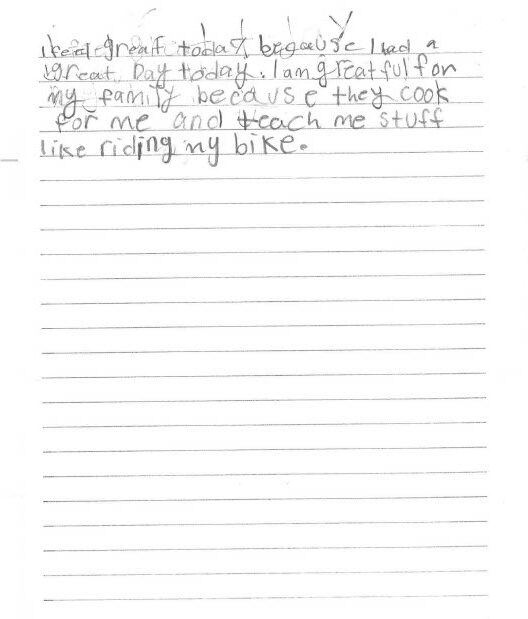 I feel great today because I had a
great Day today. I am greatful for
my family because they cook
for me and teach me stuff
like riding my bike.